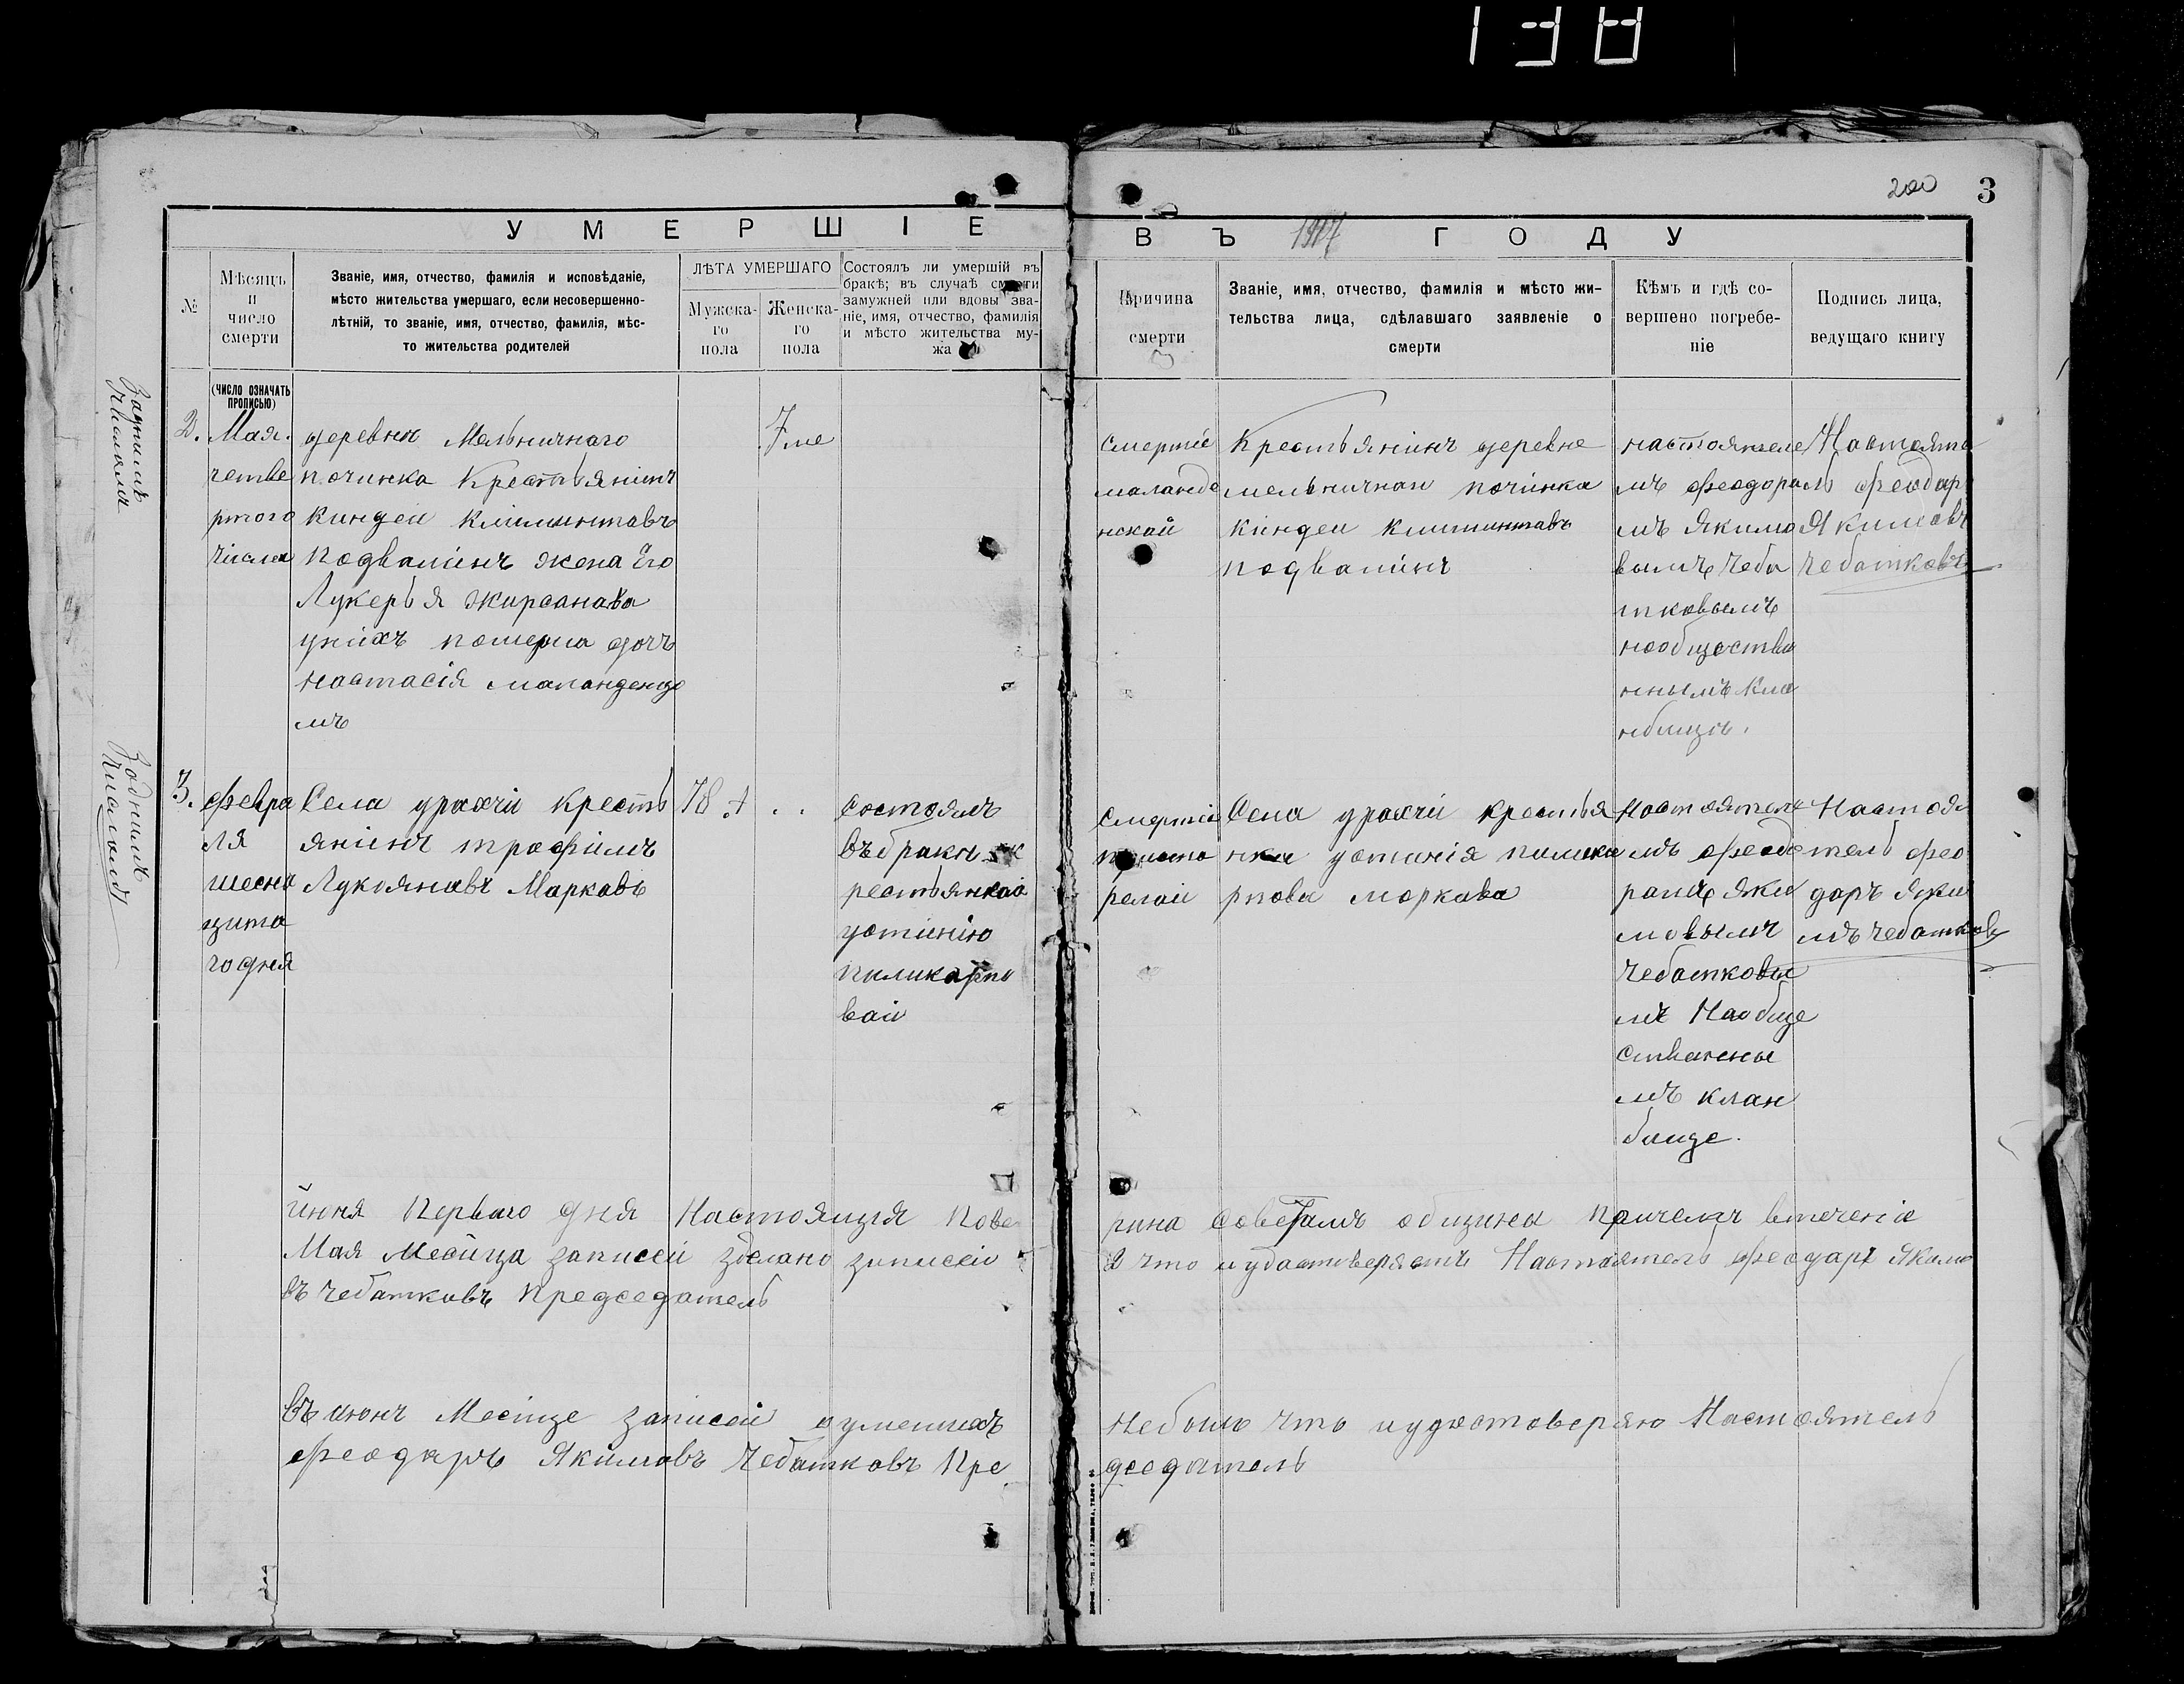 138
200 3
УМЕРШІЕ
ВЪ 1917 ГОДУ
№
Мѣсяцъ
и
число
смерти
(ЧИСЛО ОЗНАЧАТЬ
ПРОПИСЬЮ)
Званіе, имя, отчество, фамилія и исповѣданіе,
мѣсто жительства умершаго, если несовершенно-
лѣтній, то званіе, имя, отчество, фамилія, мѣс-
то жительства родителей
ЛѢТА УМЕРШАГО
Мужска-
го
пола
Женска-
го
пола
Состоялъ ли умершій въ
бракѣ; въ случаѣ смерти
замужней или вдовы зва-
ніе, имя, отчество, фамилія
и мѣсто жительства му-
жа
Причина
смерти
Званіе, имя, отчество, фамилія и мѣсто жи-
тельства лица, сдѣлавшаго заявленіе о
смерти
Кѣмъ и гдѣ со-
вершено погребе-
ніе
Подпись лица,
ведущаго книгу
2.
Мая.
четве
ртого
числа
деревни Мельничнаго
починка Крестьянинъ
Киндеи Климинтавъ
Подвалинъ жена Его
Лукерья
унихъ померла дочъ
настасія
мъ
7ме
смертіе
маланде
нской
Крестьянинъ деревне
мельничнаи починка
Киндеи Климинтавъ
подвалинъ
настоятеле
мъ феодора
мъ Якимо
вымъ Чеба
тковымъ
наобществе
ннымъ кла
Настояте
ль феодар
Якимовъ
Чебатковъ
3.
февра
ля
шесна
цата
годня
Села урахчи Кресть
янинъ трофимъ
Лукояновъ Марковъ
78
состоялъ
въбраки к
рестьянкаи
устинію
пиликарпо
ваи
смертіи
релаи
Села урахчи крестья
нка устинія пилика
рпова моркава
Настоятеле
мъ феодо
рамъ Яки
мовымъ
Чебатковы
мъ Наобще
ственны
мъ клан
бище.
Настоя
тель фео
даръ Яки
мъ чебатковъ
июня Перваго дня Настоящія Пове
рина Советамъ общины Причемъ втеченіе
Мая Месица записеи зделано записеи
2 что иудастоверяетъ Настоятель феодаръ Якимо
въ Чебатковъ Председатель
въ июнъ Месице записеи
небыло что иудостоверяю Настоятель
феодаръ Якимовъ Чебатковъ Пре
дседатель